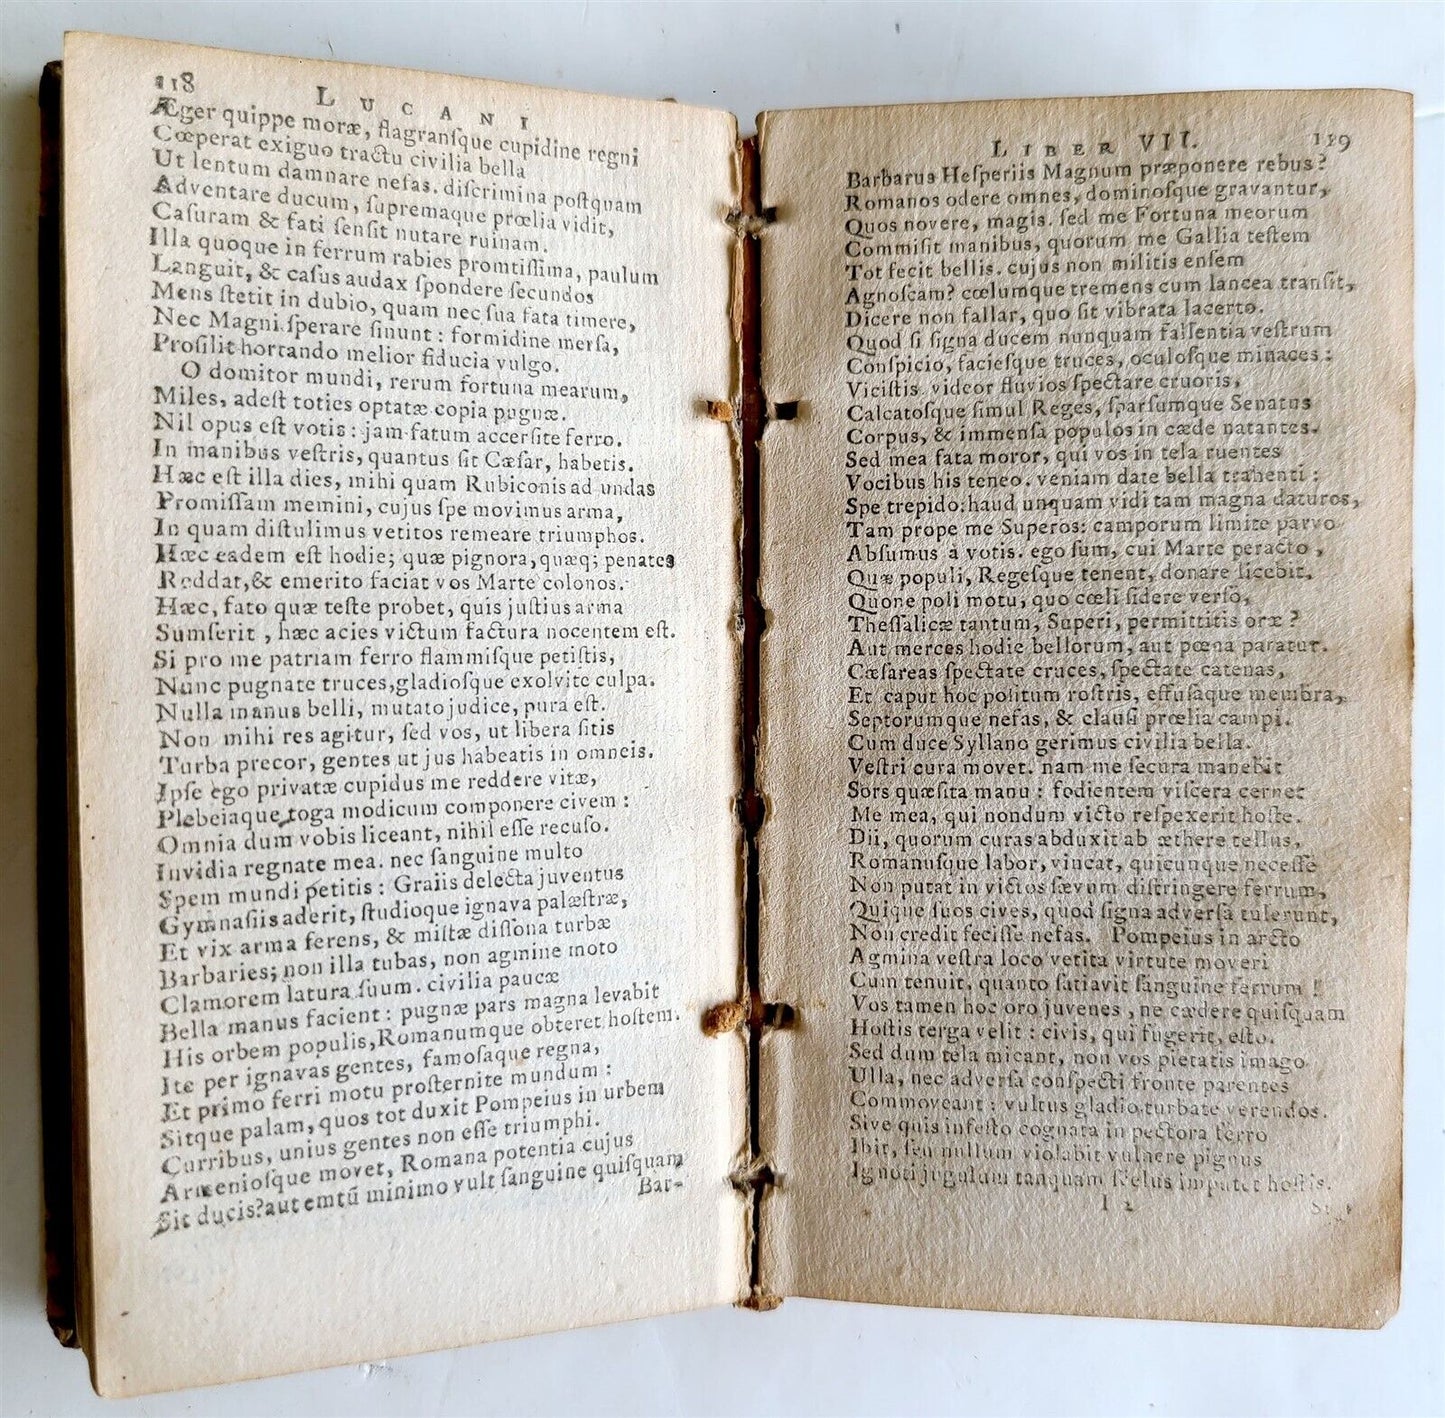 118
LUCANI
Æger quippe moræ, flagranſque cupidine regni
Cœperat exiguo tractu civilia bella
Ut lentum damnare nefas. diſcrimina poſtquam
Adventare ducum, ſupremaque prœlia vidit,
Caſuram & fati ſenſit nutare ruinam.
Illa quoque in ferrum rabies promtiſſima, paulum
Languit, & caſus audax ſpondere ſecundos
Mens ſtetit in dubio, quam nec ſua fata timere,
Nec Magni ſperare ſinunt : formidine merſa,
Proſilit hortando melior fiducia vulgo.
O domitor mundi, rerum fortuna mearum,
Miles, adeſt toties optatæ copia pugnæ.
Nil opus eſt votis : jam fatum accerſite ferro.
In manibus veſtris, quantus ſit Cæſar, habetis.
Hæc eſt illa dies, mihi quam Rubiconis ad undas
Promiſſam memini, cujus ſpe movimus arma,
In quam diſtulimus vetitos remeare triumphos.
Hæc eadem eſt hodie; quæ pignora, quæq; penates
Reddat, & emerito faciat vos Marte colonos.
Hæc, fato quæ teſte probet, quis juſtius arma
Sumſerit , hæc acies victum factura nocentem eſt.
Si pro me patriam ferro flammiſque petiſtis,
Nunc pugnate truces, gladioſque exolvite culpa.
Nulla manus belli, mutato judice, pura eſt.
Non mihi res agitur, ſed vos, ut libera ſitis
Turba precor, gentes ut jus habeatis in omneis.
Ipſe ego privatæ cupidus me reddere vitæ,
Plebeiaque toga modicum componere civem :
Omnia dum vobis liceant, nihil eſſe recuſo.
Invidia regnate mea. nec ſanguine multo
Spem mundi petitis : Graiis delecta juventus
Gymnaſiis aderit, ſtudioque ignava palæſtræ,
Et vix arma ferens, & miſtæ diſſona turbæ
Barbaries; non illa tubas, non agmine moto
Clamorem latura ſuum. civilia paucæ
Bella manus facient : pugnæ pars magna levabit
His orbem populis, Romanumque obteret hoſtem.
Ite per ignavas gentes, famoſaque regna,
Et primo ferri motu proſternite mundum :
Sitque palam, quos tot duxit Pompeius in urbem
Curribus, unius gentes non eſſe triumphi.
Armenioſque movet, Romana potentia cujus
Sit ducis? aut emtū minimo vult ſanguine quiſquam
Bar-
LIBER VII.
119
Barbarus Heſperiis Magnum præponere rebus?
Romanos odere omnes, dominoſque gravantur,
Quos novere, magis. ſed me Fortuna meorum
Commiſit manibus, quorum me Gallia teſtem
Tot fecit bellis. cujus non militis enſem
Agnoſcam? cœlumque tremens cum lancea tranſit,
Dicere non fallar, quo ſit vibrata lacerto.
Quod ſi ſigna ducem nunquam fallentia veſtrum
Conſpicio, facieſque truces, oculoſque minaces :
Viciſtis. videor fluvios ſpectare cruoris,
Calcatoſque ſimul Reges, ſparſumque Senatus
Corpus, & immenſa populos in cæde natantes.
Sed mea fata moror, qui vos in tela ruentes
Vocibus his teneo. veniam date bella trahenti :
Spe trepido: haud unquam vidi tam magna daturos,
Tam prope me Superos: camporum limite parvo
Abſumus a votis. ego ſum, cui Marte peracto ,
Quæ populi, Regeſque tenent, donare licebit.
Quone poli motu, quo cœli ſidere verſo,
Theſſalicæ tantum, Superi, permittitis oræ ?
Aut merces hodie bellorum, aut pœna paratur.
Cæſareas ſpectate cruces, ſpectate catenas,
Et caput hoc poſitum roſtris, effuſaque membra,
Septorumque nefas, & clauſi prœlia campi.
Cum duce Syllano gerimus civilia bella.
Veſtri cura movet. nam me ſecura manebit
Sors quæſita manu : fodientem viſcera cernet
Me mea, qui nondum victo reſpexerit hoſte.
Dii, quorum curas abduxit ab æthere tellus,
Romanuſque labor, vincat, quicunque neceſſe
Non putat in victos ſævum diſtringere ferrum,
Quique ſuos cives, quod ſigna adverſa tulerunt,
Non credit feciſſe nefas. Pompeius in arcto
Agmina veſtra loco vetita virtute moveri
Cum tenuit, quanto ſatiavit ſanguine ferrum !
Vos tamen hoc oro juvenes , ne cædere quiſquam
Hoſtis terga velit : civis, qui fugerit, eſto.
Sed dum tela micant, non vos pietatis imago
Ulla, nec adverſa conſpecti fronte parentes
Commoveant : vultus gladio turbate verendos.
Sive quis infeſto cognata in pectora ferro
Ibit, ſeu nullum violabit vulnere pignus
Ignoti jugulum tanquam ſcelus imputet hoſtis.
I 2